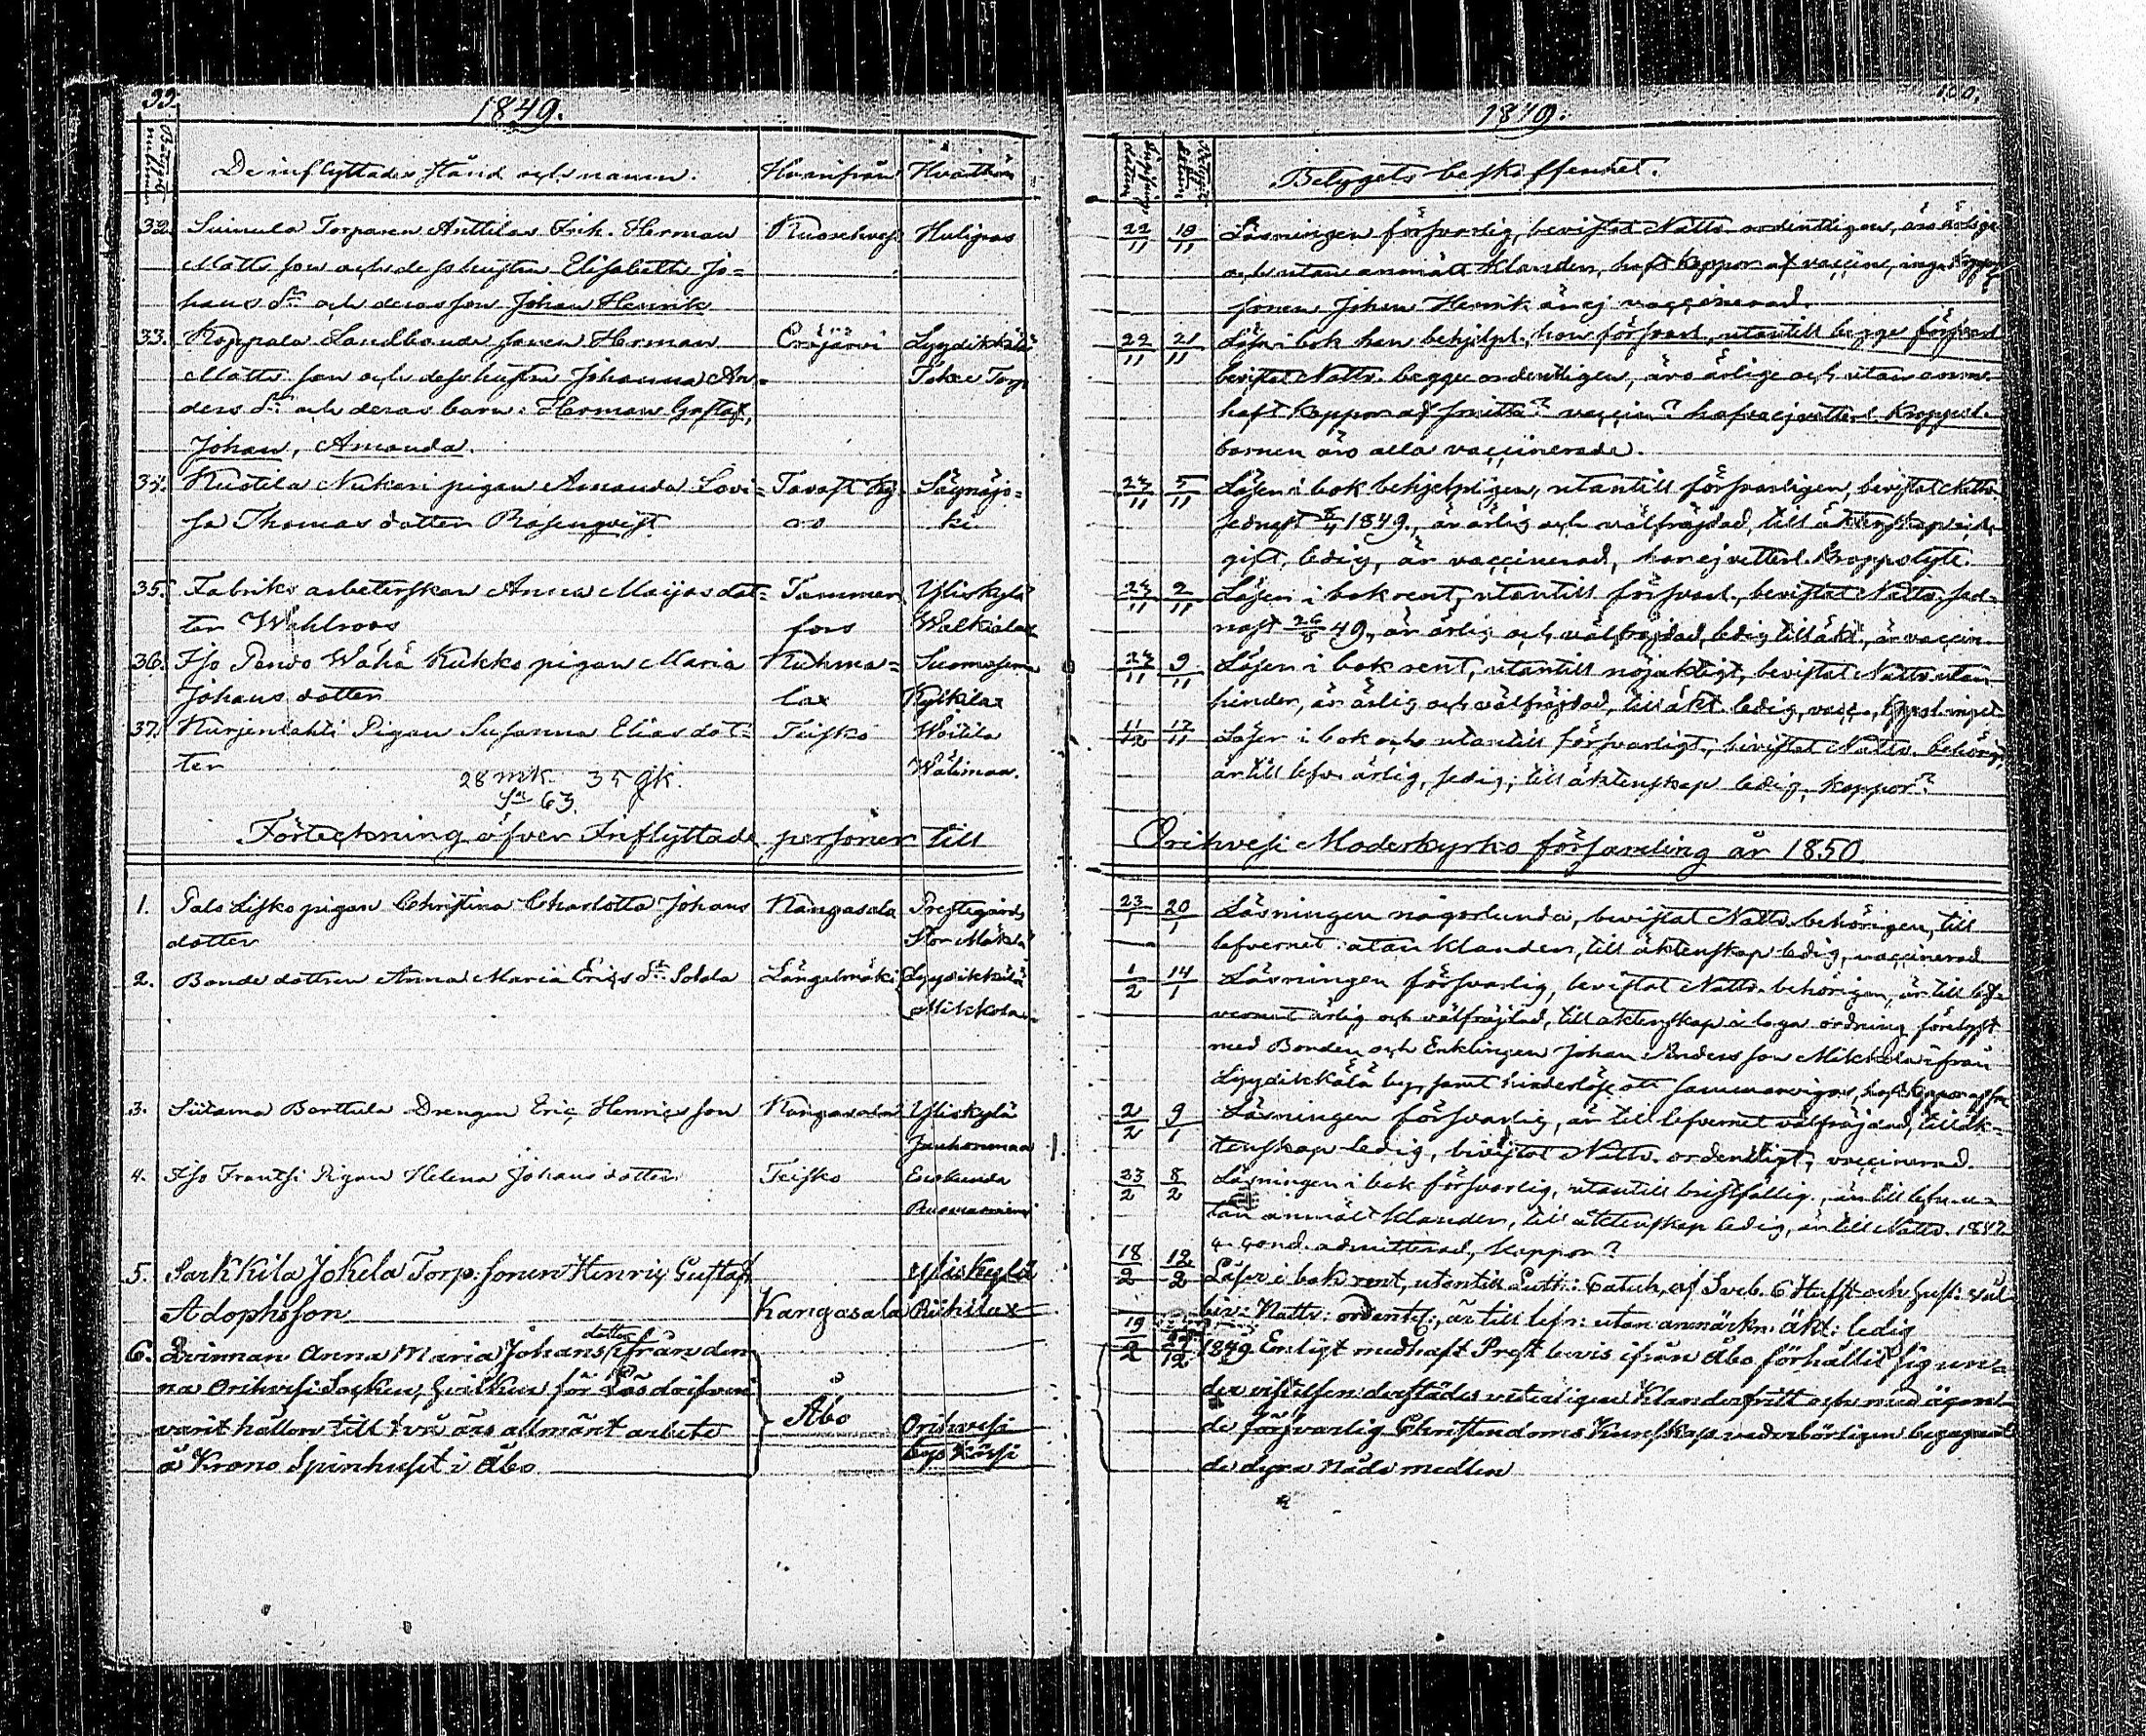 99.
1849.
Betygets nummer
De inflyttades stånd och namn.
Hvarifrån
Hvarthän
32. Siimula Torparen Anttilas Erik Herman Ruovehvesi Huligas
Matts son och dess hustru Elisabeth Jo=
hans dr och deras son Johan Henrik
33. Koppala Landbonde sonen Herman Eräjärvi Lyydikkälä
Matts son och dess hustru Johanna An= Torp
ders dr och deras barn: Herman Gustaf,
Johan, Amanda.
34. Kustila Nukari pigan Amanda Lovi= Tavast Ky Säynäjo=
sa Thomas dotter Rosenqvist ro ki
35. Fabriks arbeterskan Anna Maijas dot= Tammer Yliskylä
ter Wahlroos fors Walkiala
36. Iso Pento Wähä Kukko pigan Maria Kuhma= Suomasema
Johans dotter lax Kylkilax
37. Kurjenlahti Pigan Susanna Elias dot= Teisko Woitila
ter Wälimaa.
28 mk. 35 qk.
Sa 63.
Förteckning öfver Inflyttade personer till
1. Palo Lisko pigan Christina Charlotta Johans Kangasala Prestegårds
dotter Stor Mäkelä
2. Bonde dottren Anna Maria Erics dr Solala Längelmäki Lyydikkälä
Mikkola
3. Siitama Barttula Drengen Eric Henrics son Kangasala Yliskylä
Juuhonmaa
4. Iso Frantsi Pigan Helena Johans dotter Teisko Enokunda
5. Sarkkila Jokela Torp. sonen Henric Gustaf Yliskylä
Adophsson Kangasala Riihilax
dotter
6. Qvinnan Anna Maria Johans ifrån den
na Orihvesi Socken, hvilken för Lösdrifveri
varit hållen till två års allmänt arbete Åbo Orihvesi
å Krono Spinhuset i Åbo by Kässi
100.
1849.
Betygets beskaffenhet.
22/11 10/11 Läsningen försvarlig, bevistat Nattv. ordentligen, äro ärlige
och utan anmält klander, haft koppor af vaccine, inga
sonen Johan Henrik är ej vaccinerad.
22/11 21/11 Läsa i bok han behjelpl., hon försvarl., utantill begge försvarl
bevistat Nattv. begge ordentligen, äro ärlige och utan anm.
haft koppor af smitta? vaccin? hafva ej vetterl. Kroppsl.
barnen äro alla vaccinerade.
23/11 5/11 Läser i bok behjelpligen, utantill försvarligen, bevistat Nattv
sednast 8/4 1849., är ärlig och välfräjdad, till äktenskap
gift, ledig, är vaccinerad, har ej vetterl. Kroppslyte.
23/11 2/11 Läser i bok rent, utantill försvarl., bevistat Nattv. sed=
nast 26/8 49, är ärlig och välfräjdad, ledig till äkt., är vaccin
24/11 9/11 Läser i bok rent, utantill nöjaktigt, bevistat Nattv. utan
hinder, är ärlig och välfräjdad, till äkt. ledig, vacc.,
11/12 17/11 Läser i bok och utantill försvarligt, bevistat Nattv. behörig,
är till lefv. ärlig, sedig, till äktenskap ledig, koppor?
Orihvesi Moderkyrko församling år 1850
23/1 20/1 Läsningen någorlunda, bevistat Nattv. behörigen, till
lefvernet utan klander, till äktenskap ledig, vaccinerad
1/2 14/1 Läsningen försvarlig, bevistat Nattv. behörigen, är till lef=
vernet ärlig och välfräjdad, till äktenskap i laga ordning förelyst
med Bonden och Enklingen Johan Anders son Mikkola ifrån
Lyydikkälä by, samt hinderlös att sammanvigas, haft koppor
2/2 9/1 Läsningen försvarlig, är till lefvernet välfräjdad, till äk=
tenskap ledig, bevistat Nattv. ordentligt, vaccinerad.
23/2 8/2 Läsningen i bok försvarlig, utantill bristfällig, är till lefv. u=
tan anmält klander, till äktenskap ledig, är till Nattv. 1847
admitterad, koppor?
18/2 12/2 Läser i bok rent, utantill Luth: Catech. af Sveb. 6 Hufst och
bev: Nattv: ordentl:, är till lefv: utan anmärkn. äkt: ledig
19/2 12 1849 Enligt medhaft Prest bevis ifrån Åbo förhållit sig un=
der vistelsen derstädes veterligen klanderfritt och med ägan=
de försvarlig Christendoms Kunskap vederbörligen begagnat
de dyra Nåde medlen